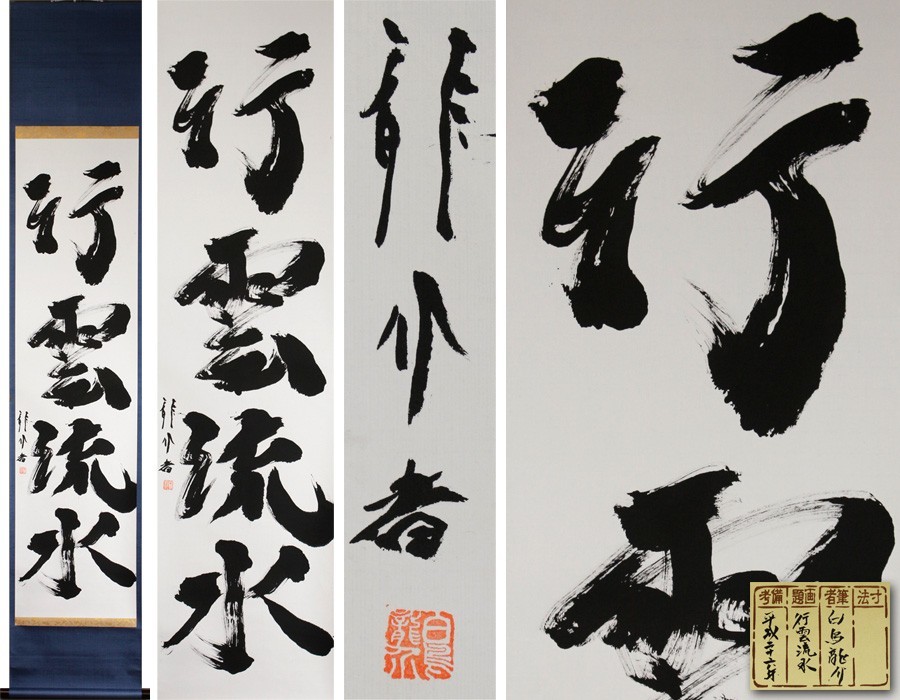 行雲流水
龍介書
行雲流水
龍介書
龍介書
白鳥龍介
行雲
寸法
筆者
白鳥龍介
画題
行雲流水
備考
平成二十六年